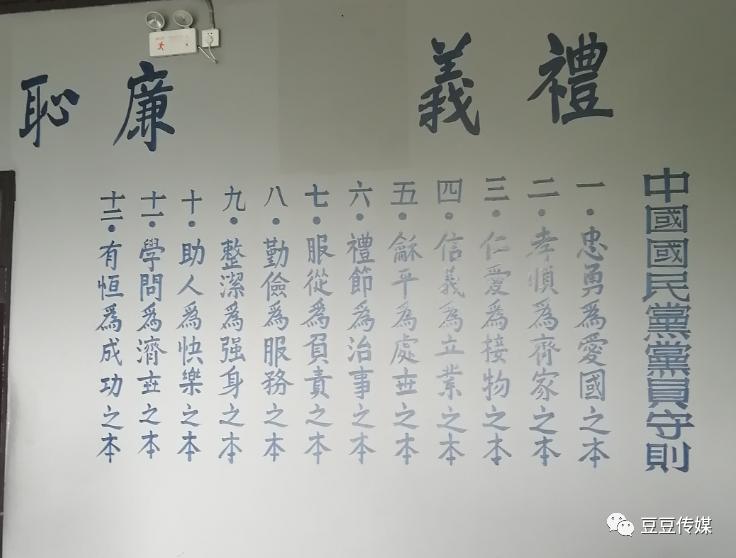 禮義廉恥
中國國民黨黨員守則
一·忠勇爲愛國之本
二·孝順爲齊家之本
三·仁愛爲接物之本
四·信義爲立業之本
五·龢平爲處世之本
六·禮節爲治事之本
七·服從爲負責之本
八·勤儉爲服務之本
九·整潔爲强身之本
十·助人爲快樂之本
十一·學問爲濟世之本
十二·有恒爲成功之本
豆豆传媒